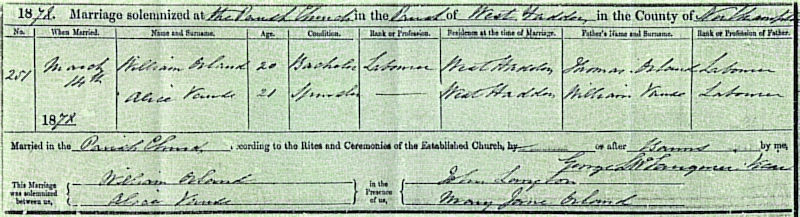 1878. Marriage solemnized at the Parish Church in the Parish of West Haddon in the County of Northampton
No. When Married. Name and Surname. Age. Condition. Rank or Profession. Residence at the time of Marriage. Father's Name and Surname. Rank or Profession of Father.
251 March 14th 1878 William Orland 20 Bachelor Labourer West Haddon Thomas Orland Labourer
Alice Vause 21 Spinster — West Haddon William Vause Labourer
Married in the Parish Church, according to the Rites and Ceremonies of the Established Church, by or after Banns by me,
George Vicar
This Marriage was solemnized between us, William Orland Alice Vause in the Presence of us, John Mary Jane Orland